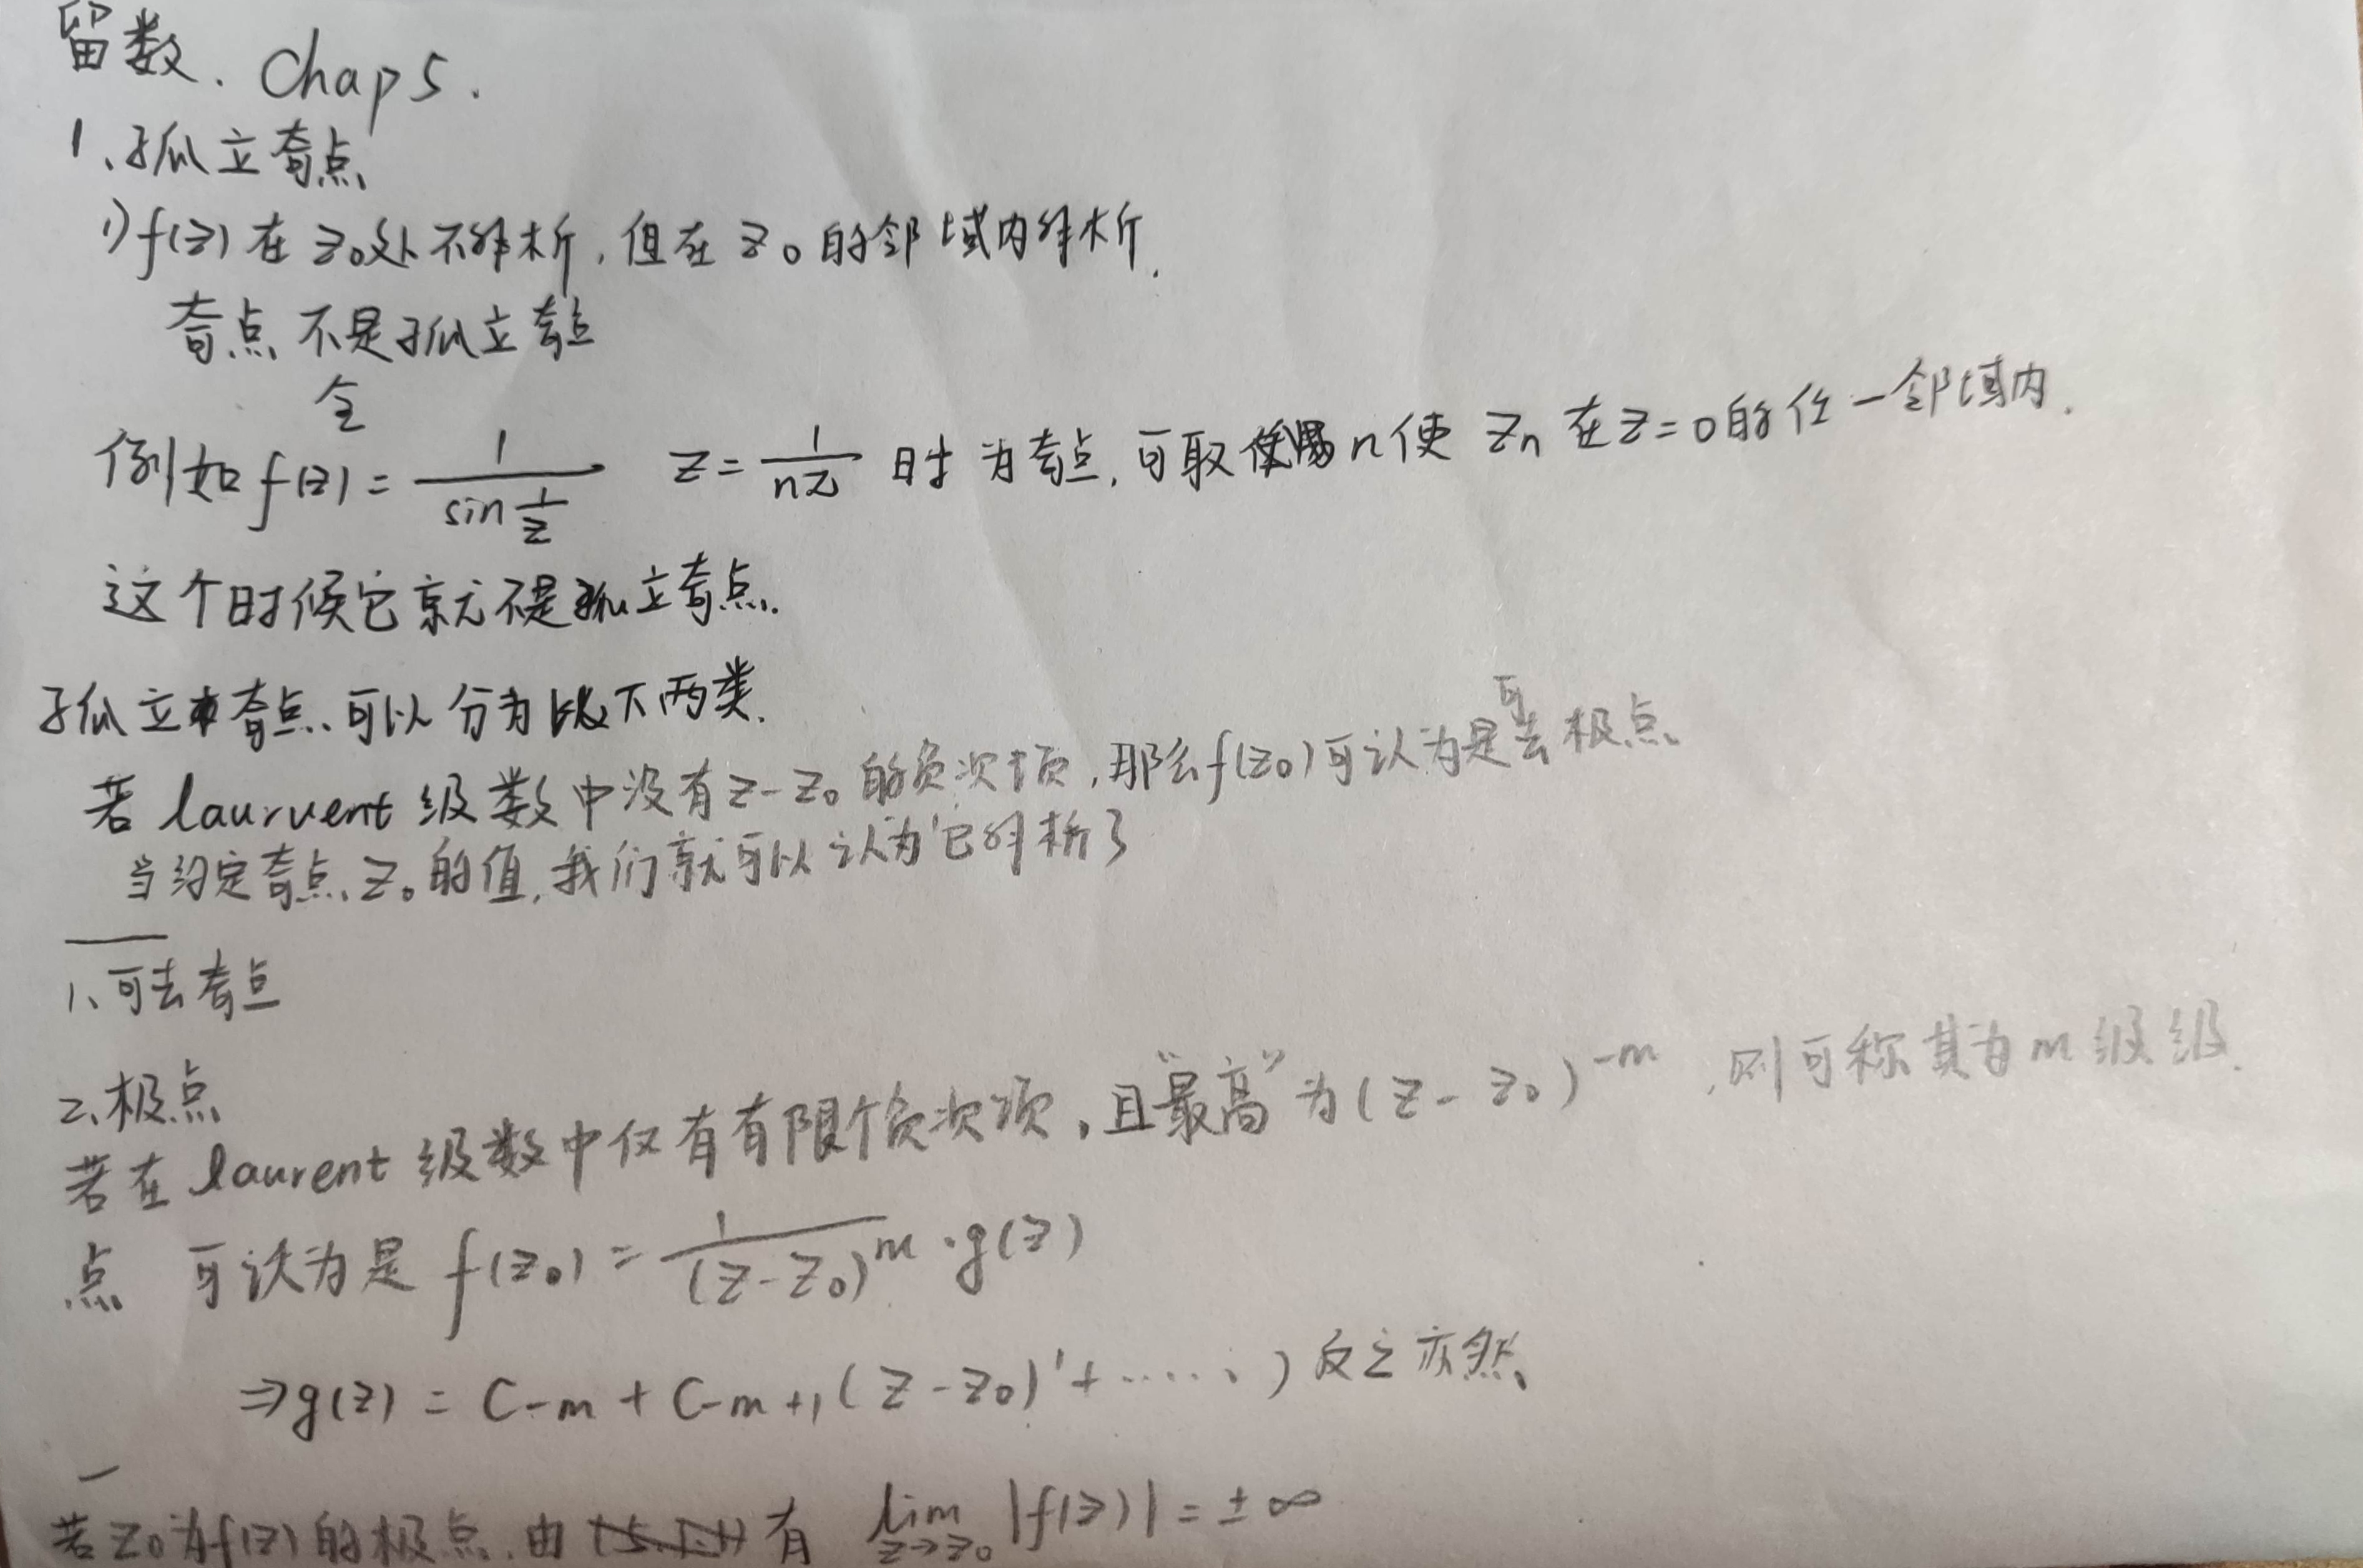 留数. Chap 5.
1、孤立奇点
1) f(z) 在 z₀处不解析, 但在 z₀ 的邻域内解析.
奇点不是孤立奇点
令
例如 f(z) = 1/(sin 1/z) z = 1/(nπ) 时 为奇点, 可取 n 使 zₙ 在 z=0 的任一邻域内.
这个时候它就不是孤立奇点.
孤立奇点、可以分为以下两类.
若 laurvent 级数中没有 z-z₀ 的负次项, 那么 f(z₀) 可认为是可去极点
当约定奇点 z₀ 的值, 我们就可以认为它解析了
1、可去奇点
2、极点
若在 laurent 级数中仅有有限个负次项, 且“最高”为 (z-z₀)⁻ᵐ, 则可称其为 m 级级
点 可认为是 f(z₀) = 1/(z-z₀)ᵐ · g(z)
⇒ g(z) = C-m + C-m+1 (z-z₀)¹ + ······) 反之亦然
若 z₀ 为 f(z) 的极点, 由 有 lim z→z₀ |f(z)| = ±∞